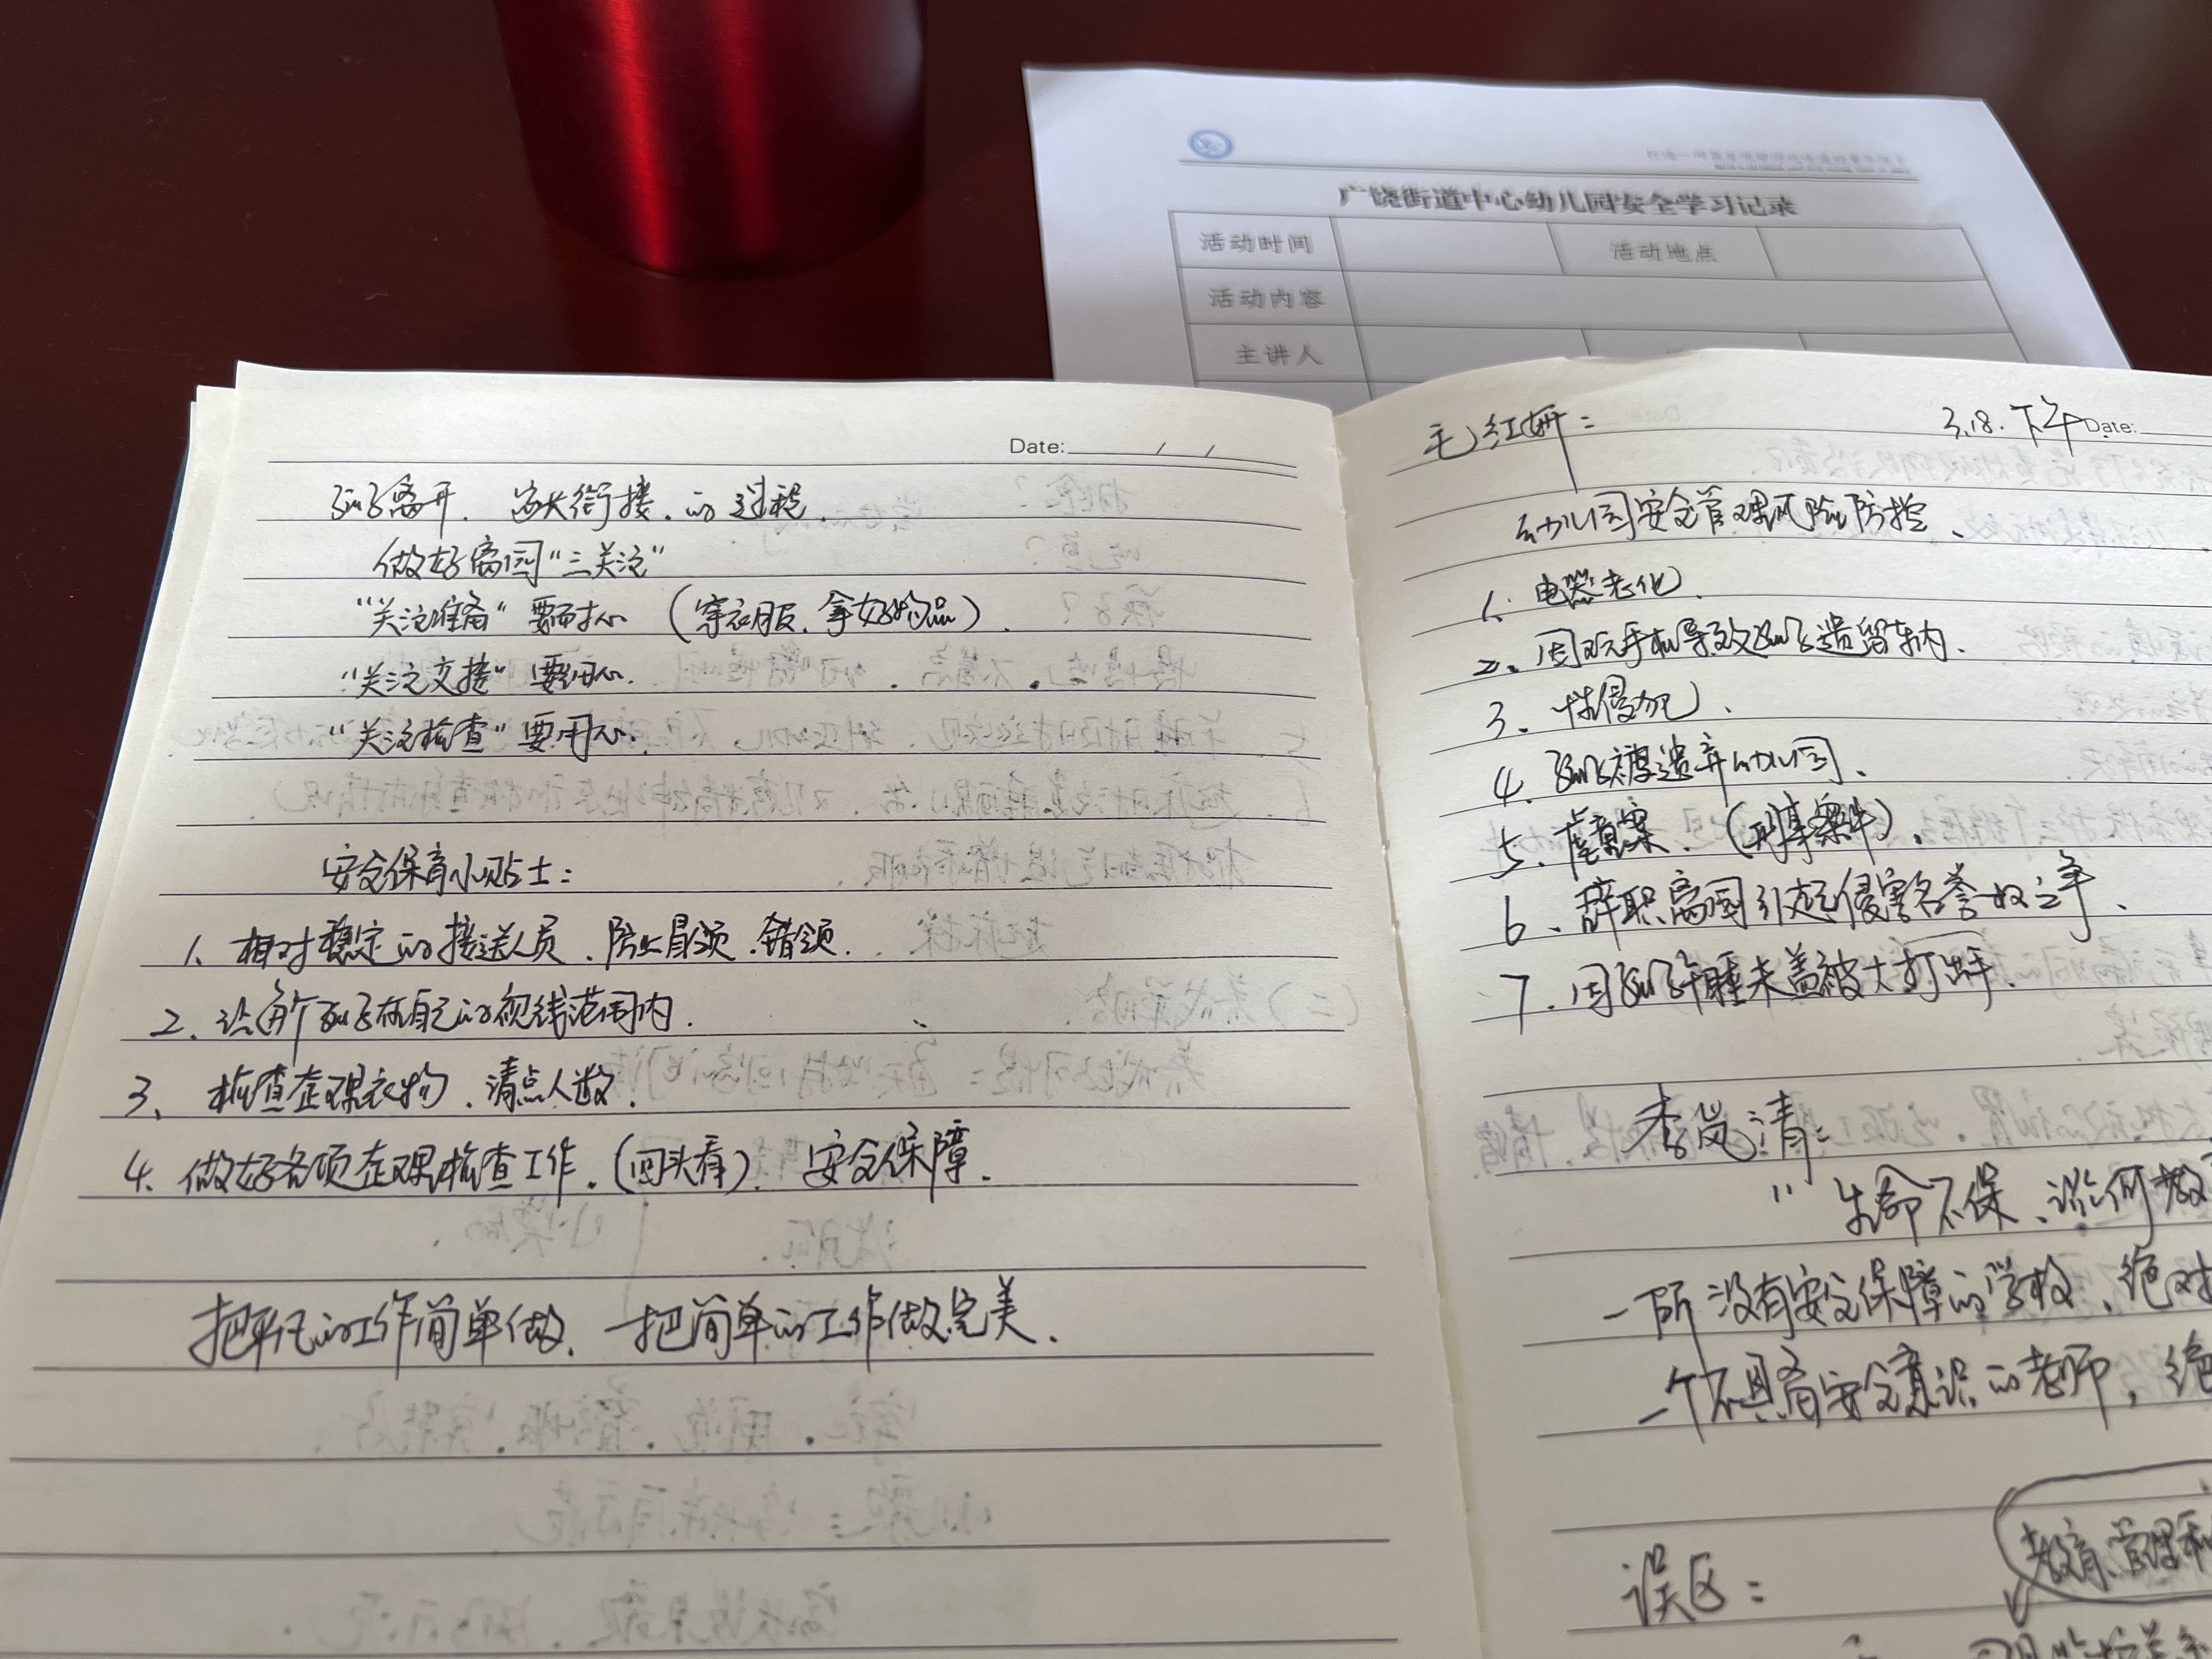 广饶街道中心幼儿园安全学习记录
活动时间 活动地点
活动内容
主讲人
Date: / /
幼儿离开、家长衔接的过程.
做好离园“三关注”
“关注准备”要耐心(穿衣服、拿好物品).
“关注交接”要细心.
“关注检查”要用心.
安全保育小贴士:
1、相对稳定的接送人员、防止冒领、错领.
2、让每个幼儿在自己的视线范围内.
3、检查整理衣物、清点人数.
4、做好各项整理检查工作.(回头看). 安全保障.
把平凡的工作简单做. 把简单的工作做完美.
毛红妍: 3.18.下午 Date:
幼儿园安全管理风险防控、
1、电器老化.
2、因玩手机导致幼儿遗留车内.
3、性侵犯、
4、幼儿被遗弃幼儿园、
5、虐童案.(刑事案件).
6、辞职离园引起侵害名誉权之争、
7、因幼儿午睡未盖被大打出手.
李岚清:
“生命不保、谈何教
一所没有安全保障的学校、绝对
一个不具有安全意识的老师,绝
教育、管理和
误区: